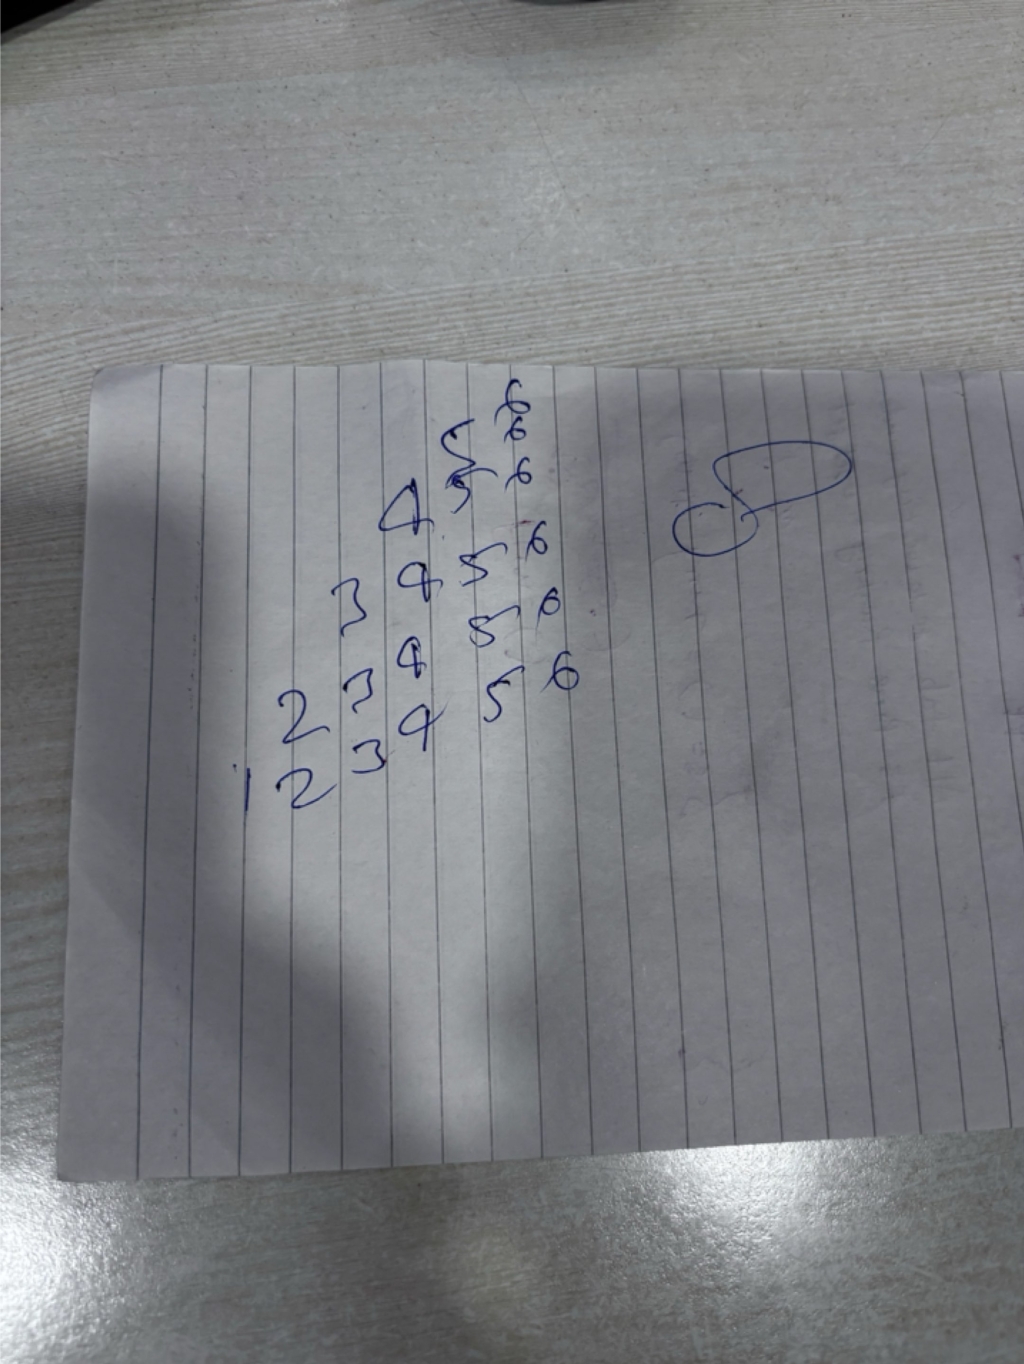 6
5 6
4 5 6
3 4 5 6
2 3 4 5 6
1 2 3 4 5 6